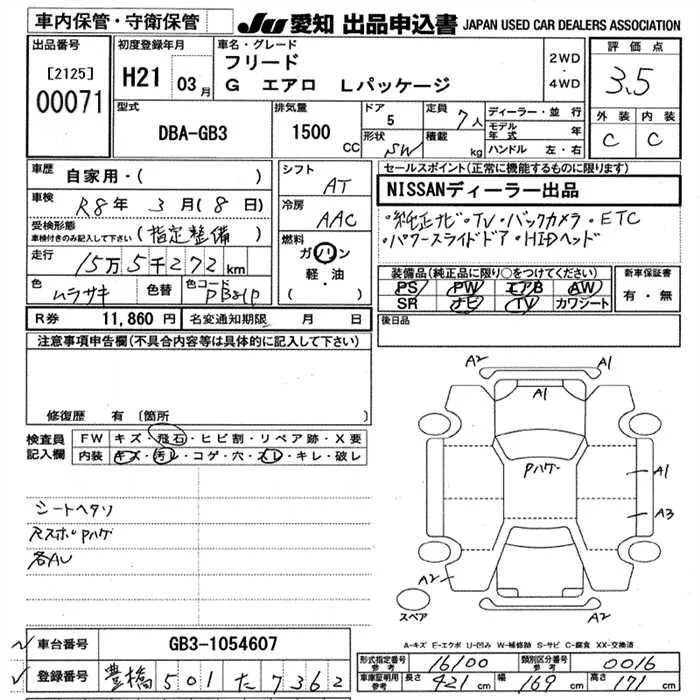 車内保管・守衛保管
JU 愛知 出品申込書 JAPAN USED CAR DEALERS ASSOCIATION
出品番号
[2125]
00071
初度登録年月
H21 03月
車名・グレード
フリード
G エアロ Lパッケージ
2WD
・
4WD
評価点
3.5
外装 内装
C C
型式
DBA-GB3
排気量
1500 CC
ドア
5
形状
SW
定員
7人
積載
kg
ディーラー・並行
モデル年式 年
ハンドル 左・右
車歴
自家用・( )
車検
R8年 3月(8日)
受検形態
車検付きのみ記入して下さい
(指定整備)
走行
15万5千272km
色
ムラサキ
色替
色コード
PB81P
シフト
AT
冷房
AAC
燃料
ガソリン
軽・油
( )
セールスポイント(正常に機能するものに限ります)
NISSANディーラー出品
・純正ナビ・TV・バックカメラ・ETC
・パワースライドドア・HIDヘッド
装備品(純正品に限り○をつけてください)
PS PW エアB AW
SR ナビ TV カワシート
新車保証書
有・無
後日品
R券 11,860円 名変通知期限 月 日
注意事項申告欄(不具合内容等は具体的に記入して下さい)
修復歴 有 〔箇所
検査員
記入欄
FW キズ・飛石・ヒビ割・リペア跡・X要
内装 キズ・汚レ・コゲ・穴・スレ・キレ・破レ
シートヘタリ
Rスポ゛Pハゲ
各AU
A2
A1
A1
Pハゲ
A1
A3
A2
A2
スペア
A-キズ E-エクボ U-凹み W-補修跡 S-サビ C-腐食 XX-交換済
車台番号 GB3-1054607
登録番号 豊橋 501 た 7362
形式指定番号
参考
16100
類別区分番号
参考
0016
車庫証明用
参考
長さ 421cm 幅 169cm 高さ 171cm